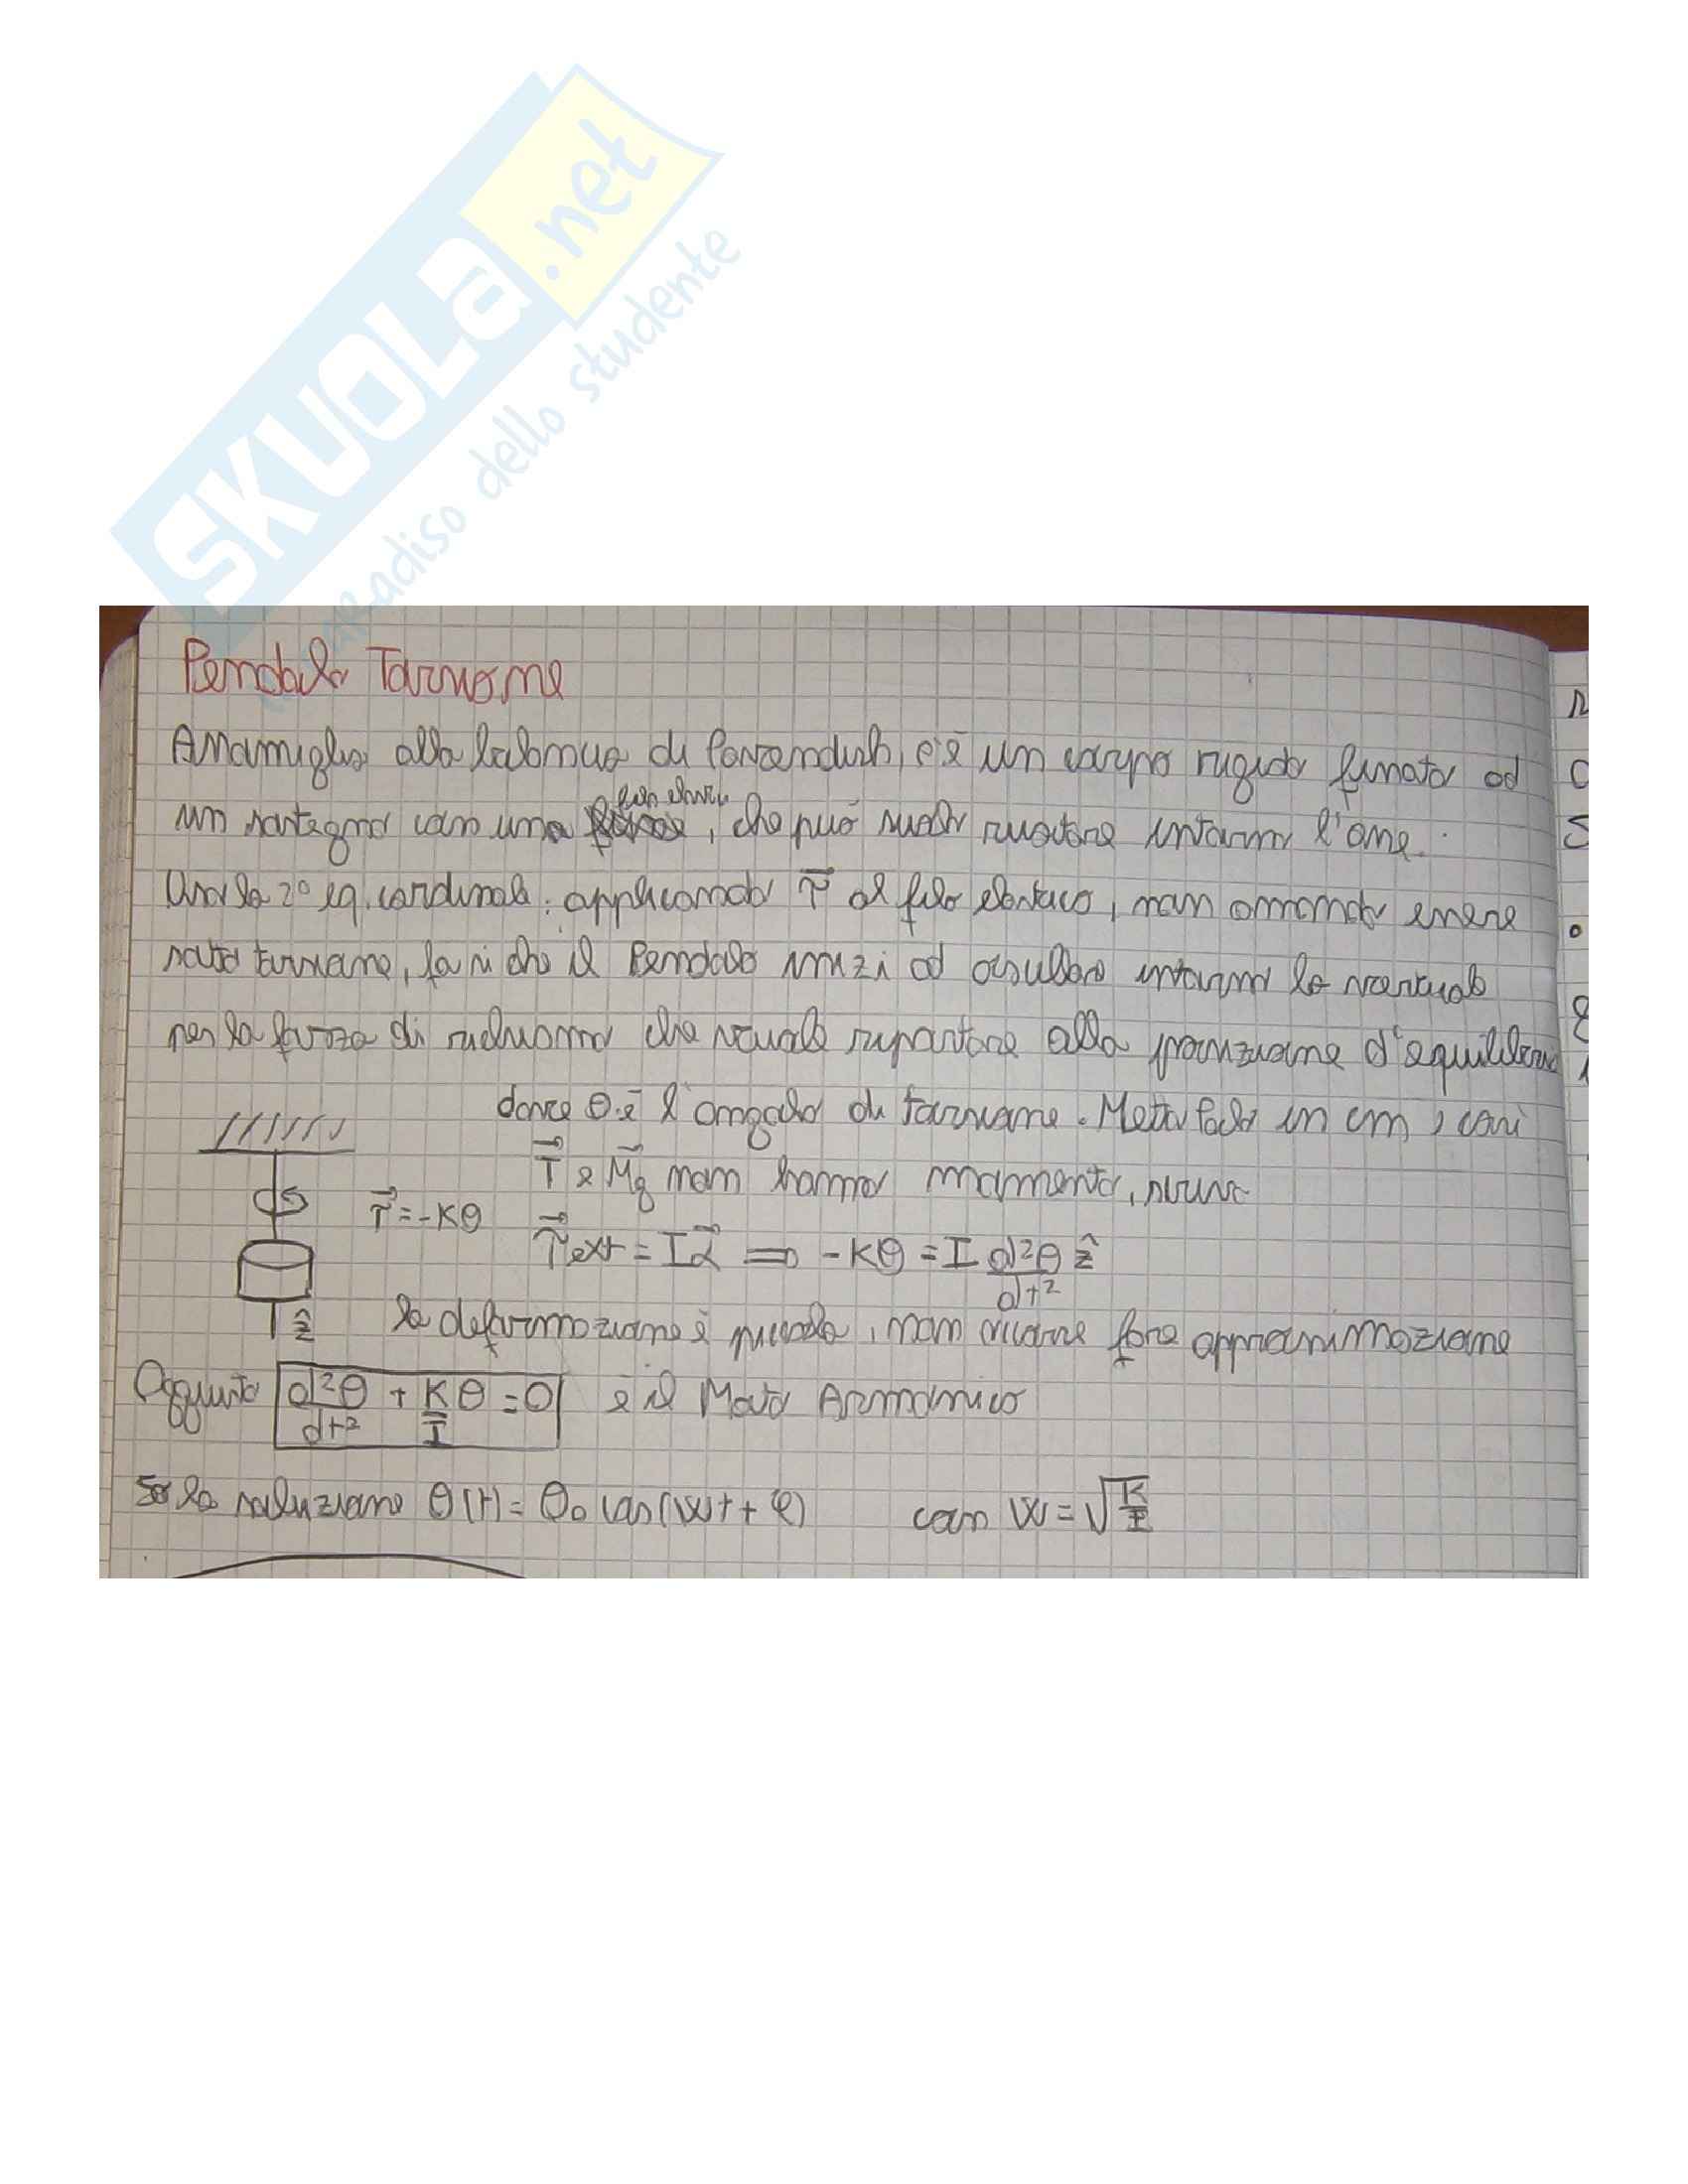 SKUOLA.net
paradiso dello studente
Pendolo Torsione
Assomiglia alla bilancia di Cavendish, c'è un corpo rigido fissato ad
un sostegno con una, che può solo ruotare intorno l'asse.
Uso la 2° eq. cardinale: applicando τ al filo elastico, non amando essere
sotto torsione, fa si che il Pendolo inizi ad oscillare intorno la verticale
per la forza di richiamo che vuole riportare alla posizione d'equilibrio
dove θ è l'angolo di torsione. Metto Polo in cm, così
T e Mg non hanno momento, scrivo
τ = -Kθ
τext = Iα ⇒ -Kθ = I d²θ/dt² ẑ
ẑ
la deformazione è piccola, non occorre fare approssimazione
Aggiusto d²θ/dt² + K/I θ = 0 è il Moto Armonico
So la soluzione θ(t) = θ₀ cos(wt + φ) con w = √K/I